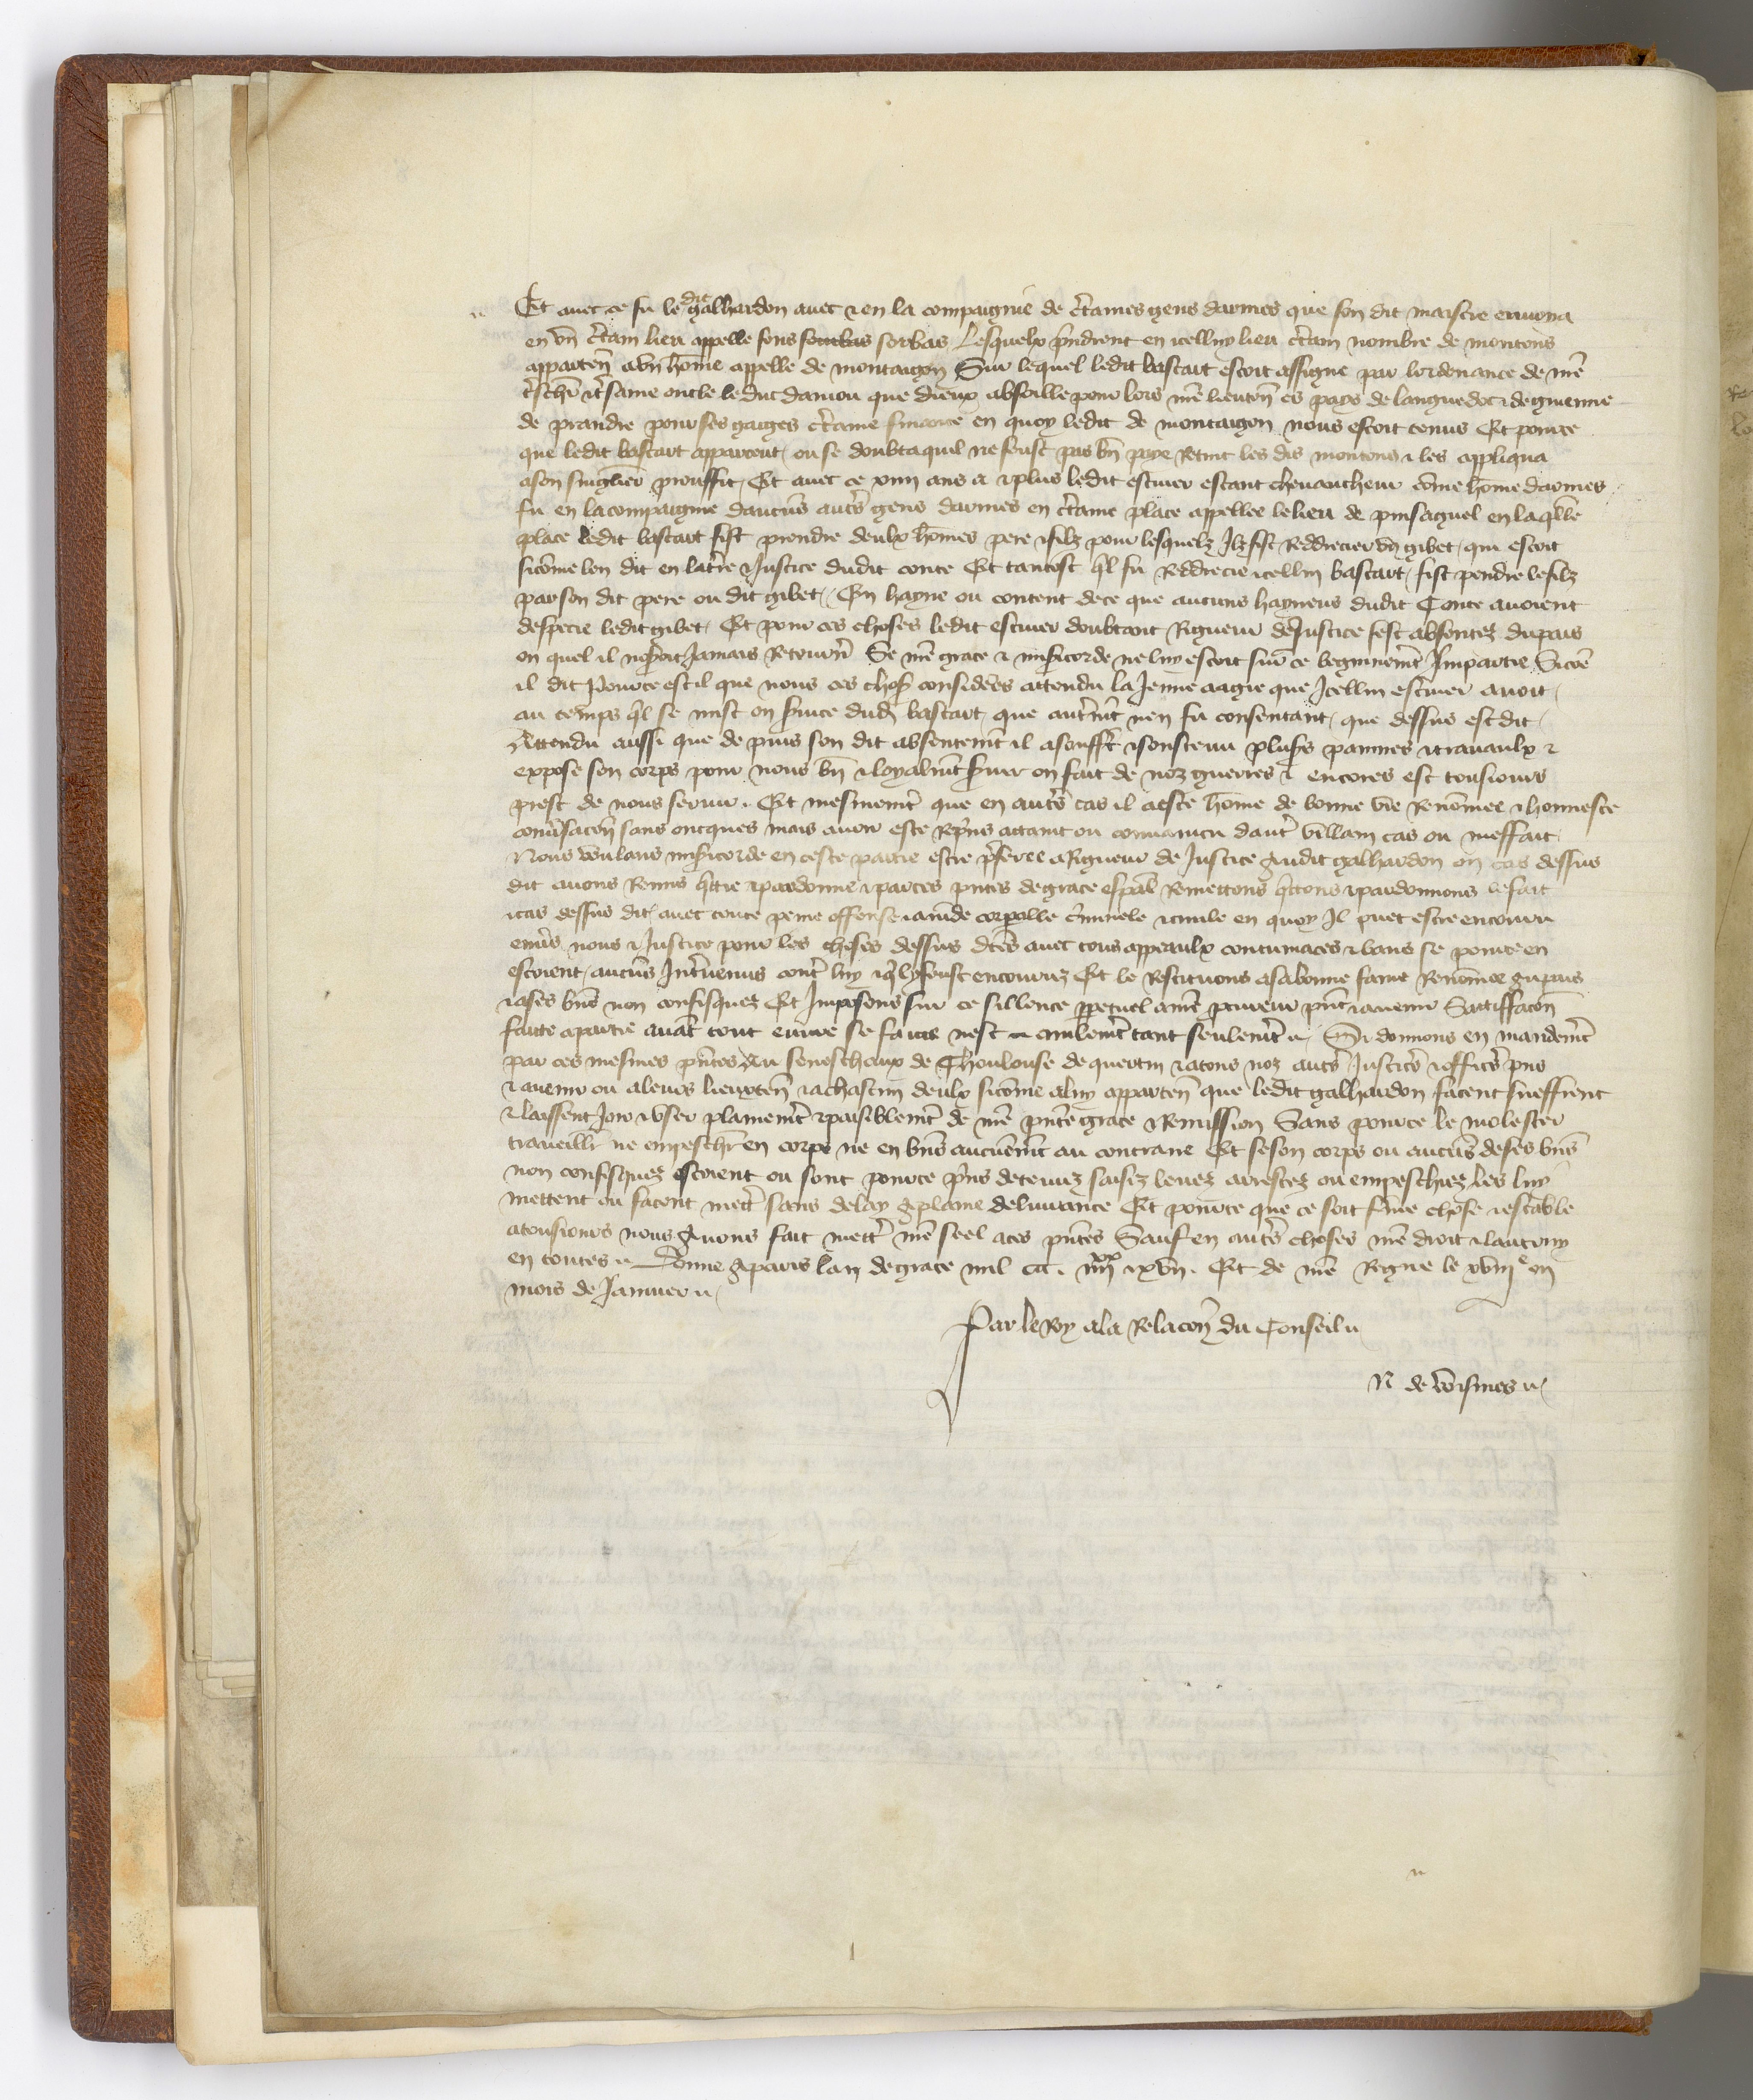 Et avec ce fu le dit galhardon avec & en la compaignie de c̃taines gens darmes que son dit maistre envoya
en vn c̃tain lieu appelle sons sorbas Lesquelx p̃ndrent en icelluy lieu c̃tain nombre de moutons
apparteñ a vn hõme appelle de montaigon Sur lequel ledit bastart estoit assigne par lordenance de nr̃e
t̃schr̃ & t̃same oncle le duc daniou que dieux absoille pour lors nr̃e lieuteñ es pays de languedoc & de guienne
de prandre pour ses gaiges c̃taine finance en quoy ledit de montaigon nous estoit tenus Et pource
que ledit bastart apparceut / ou se doubta quil ne feust pas bñ paye Retint les dis moutons & les appliqua
a son singulier prouffit / Et avec ce xiiii ans a & plus ledit escuier estant chevaucheur cõme hõme darmes
fu en la compaignie daucũs autr̃s gens darmes en c̃taine place appellee le lieu de pinsaguel en laq̃lle
place ledit bastart fist prendre deulx hõmes pere & filz pour lesquelz Ilz fist Reddrecier vñ gibet / qui estoit
sicõme len dit en la tr̃re & Justice dudit conte Et tantost q̃l fu Reddrecie icellui bastart / fist pendre le filz
par son dit pere ou dit gibet / En hayne ou content de ce que aucuns hayneus dudit Conte avoient
despecie ledit gibet / Et pour ces choses ledit escuier doubtant Rigueur de Justice sest absentez du pais
ou quel il noseroit Jamais Retourñ Se nr̃e grace & mis̃icorde ne luy estoit sur ce beguinem̃t Impartie Sicõe
il dit Pource est il que nous ces chos̃ consider̃s attendu la Jenne aagie que Icellui escuier avoit /
au temps q̃l se mist ou s̃vice dud̃ bastart / que autrem̃t nen fu consentant / que dessus est dit /
Attendu aussi que de puis son dit absentem̃t il a souff̃t & soustenu plus̃rs painnes & travaulx &
expose son corps pour nous bñ & loyalm̃t s̃vir ou fait de noz guerres & encores est tousiours
prest de nous servir . Et mesmem̃t que en autr̃s cas il a este hõme de bonne vie Renõmee & honneste
conṽsacoñ sans oncques mais avoir este Rep̃ns attaint ou convaincu daut̃ villain cas ou meffait
Nous voulans mis̃icorde en ceste partie estre p̃feree a Rigueur de Justice audit galhardon ou cas dessus
dit avons Remis q̃ttie & pardonne & par ces pñtes de grace esp̃al Remettons q̃ttons & pardonnons le fait
& cas dessus dit / avec toute peine offense & amẽde corporelle c̃iminele & civile en quoy Il puet estre encouru
enṽs nous & Justice pour les choses dessus dc̃es avec tous appeaulx contumaces & bans se pource en
estoient / aucũs Int̃venus cont̃ luy & q̃l y feust encouruz Et le Restituons a sa bonne fame Renõmee au pais
& a ses bñs non confisquez Et Imposons sur ce sillence p̃petuel a nr̃e procureur pñt & avenir Satiffacoñ
faitte a partie avãt tout euvre se faitte nest civilem̃t tant seulem̃t / Si donnons en mandem̃t
par ces mesmes pñtes Au seneschaux de Thoulouse de quercin & a tous noz autr̃s Justic̃s & offic̃s pñs
& avenir ou a leurs lieuxteñ & a chascun deulx sicõme a luy apparteñ que ledit galhardon facent sueffrent
& laissent Joir & vser plainem̃t & paisiblem̃t de nr̃e pñte grace & Remission Sans pource le molester
traveillr̃ ne empeschr̃ en corps ne en bñs aucunem̃t au contraire Et se son corps ou aucũs de ses bñs
non confisquez estoient ou sont pource p̃ns detenuz saisiz levez arrestez ou empeschiez les luy
mettent ou facent mett̃ sans delay a plaine delivrance Et pource que ce soit f̃me chose & estable
a tousiours nous Avons fait mett̃ nr̃e seel a ces pñtes Sauf en autr̃s choses nr̃e droit & lautruy
en toutes Donne A paris lan de grace mil ccc . iiii xx & xvii . Et de nr̃e Regne le xviii e ou
mois de Januier
Par le Roy a la Relacoñ du Conseil
N de voisines